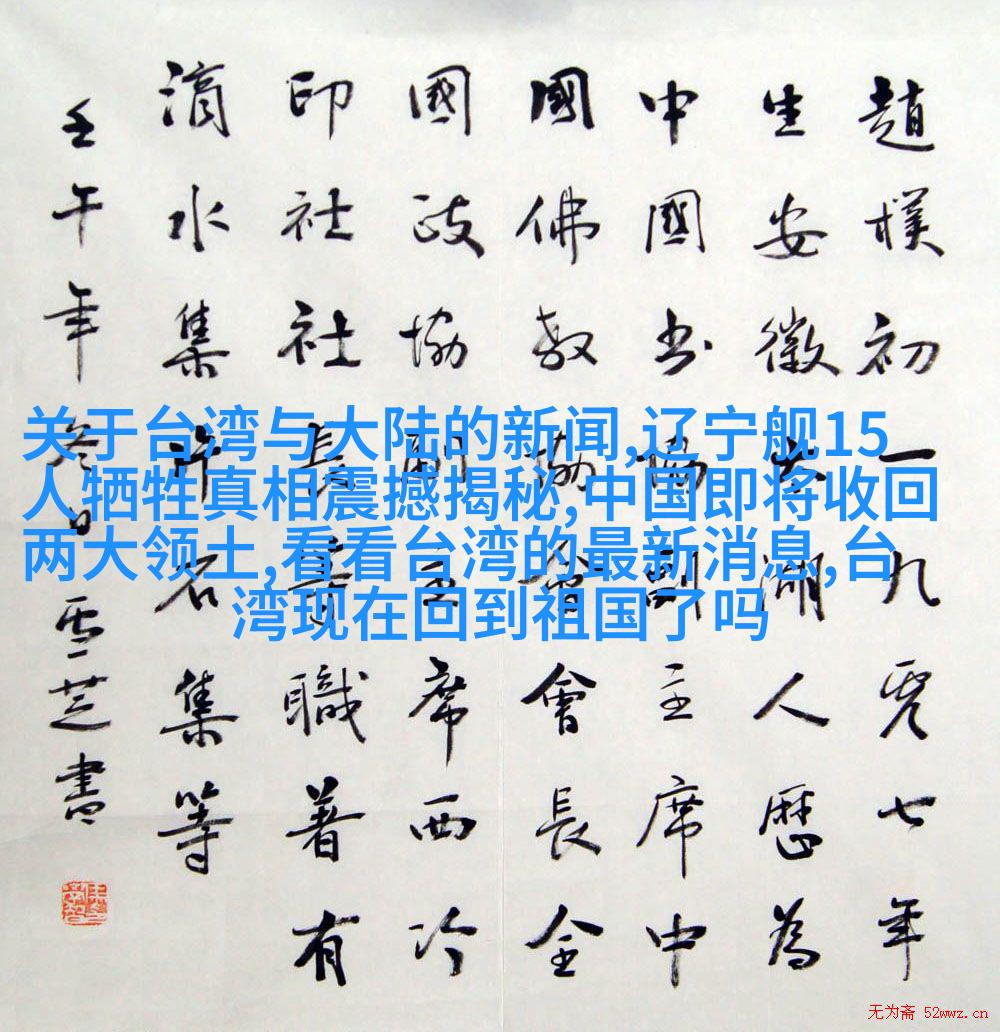 趙樸初一九零七年
生安徽太湖人歷為
中國书協副主席中
國佛教協會會長全
國政協副主席西泠
印社社長等職著有
滴水集片石集等
壬午年冬日雪芝書
关于台湾与大陆的新闻,辽宁舰15
人牺牲真相震撼揭秘,中国即将收回
两大领土,看看台湾的最新消息,台
湾现在回到祖国了吗
无为斋 52wwz.cn